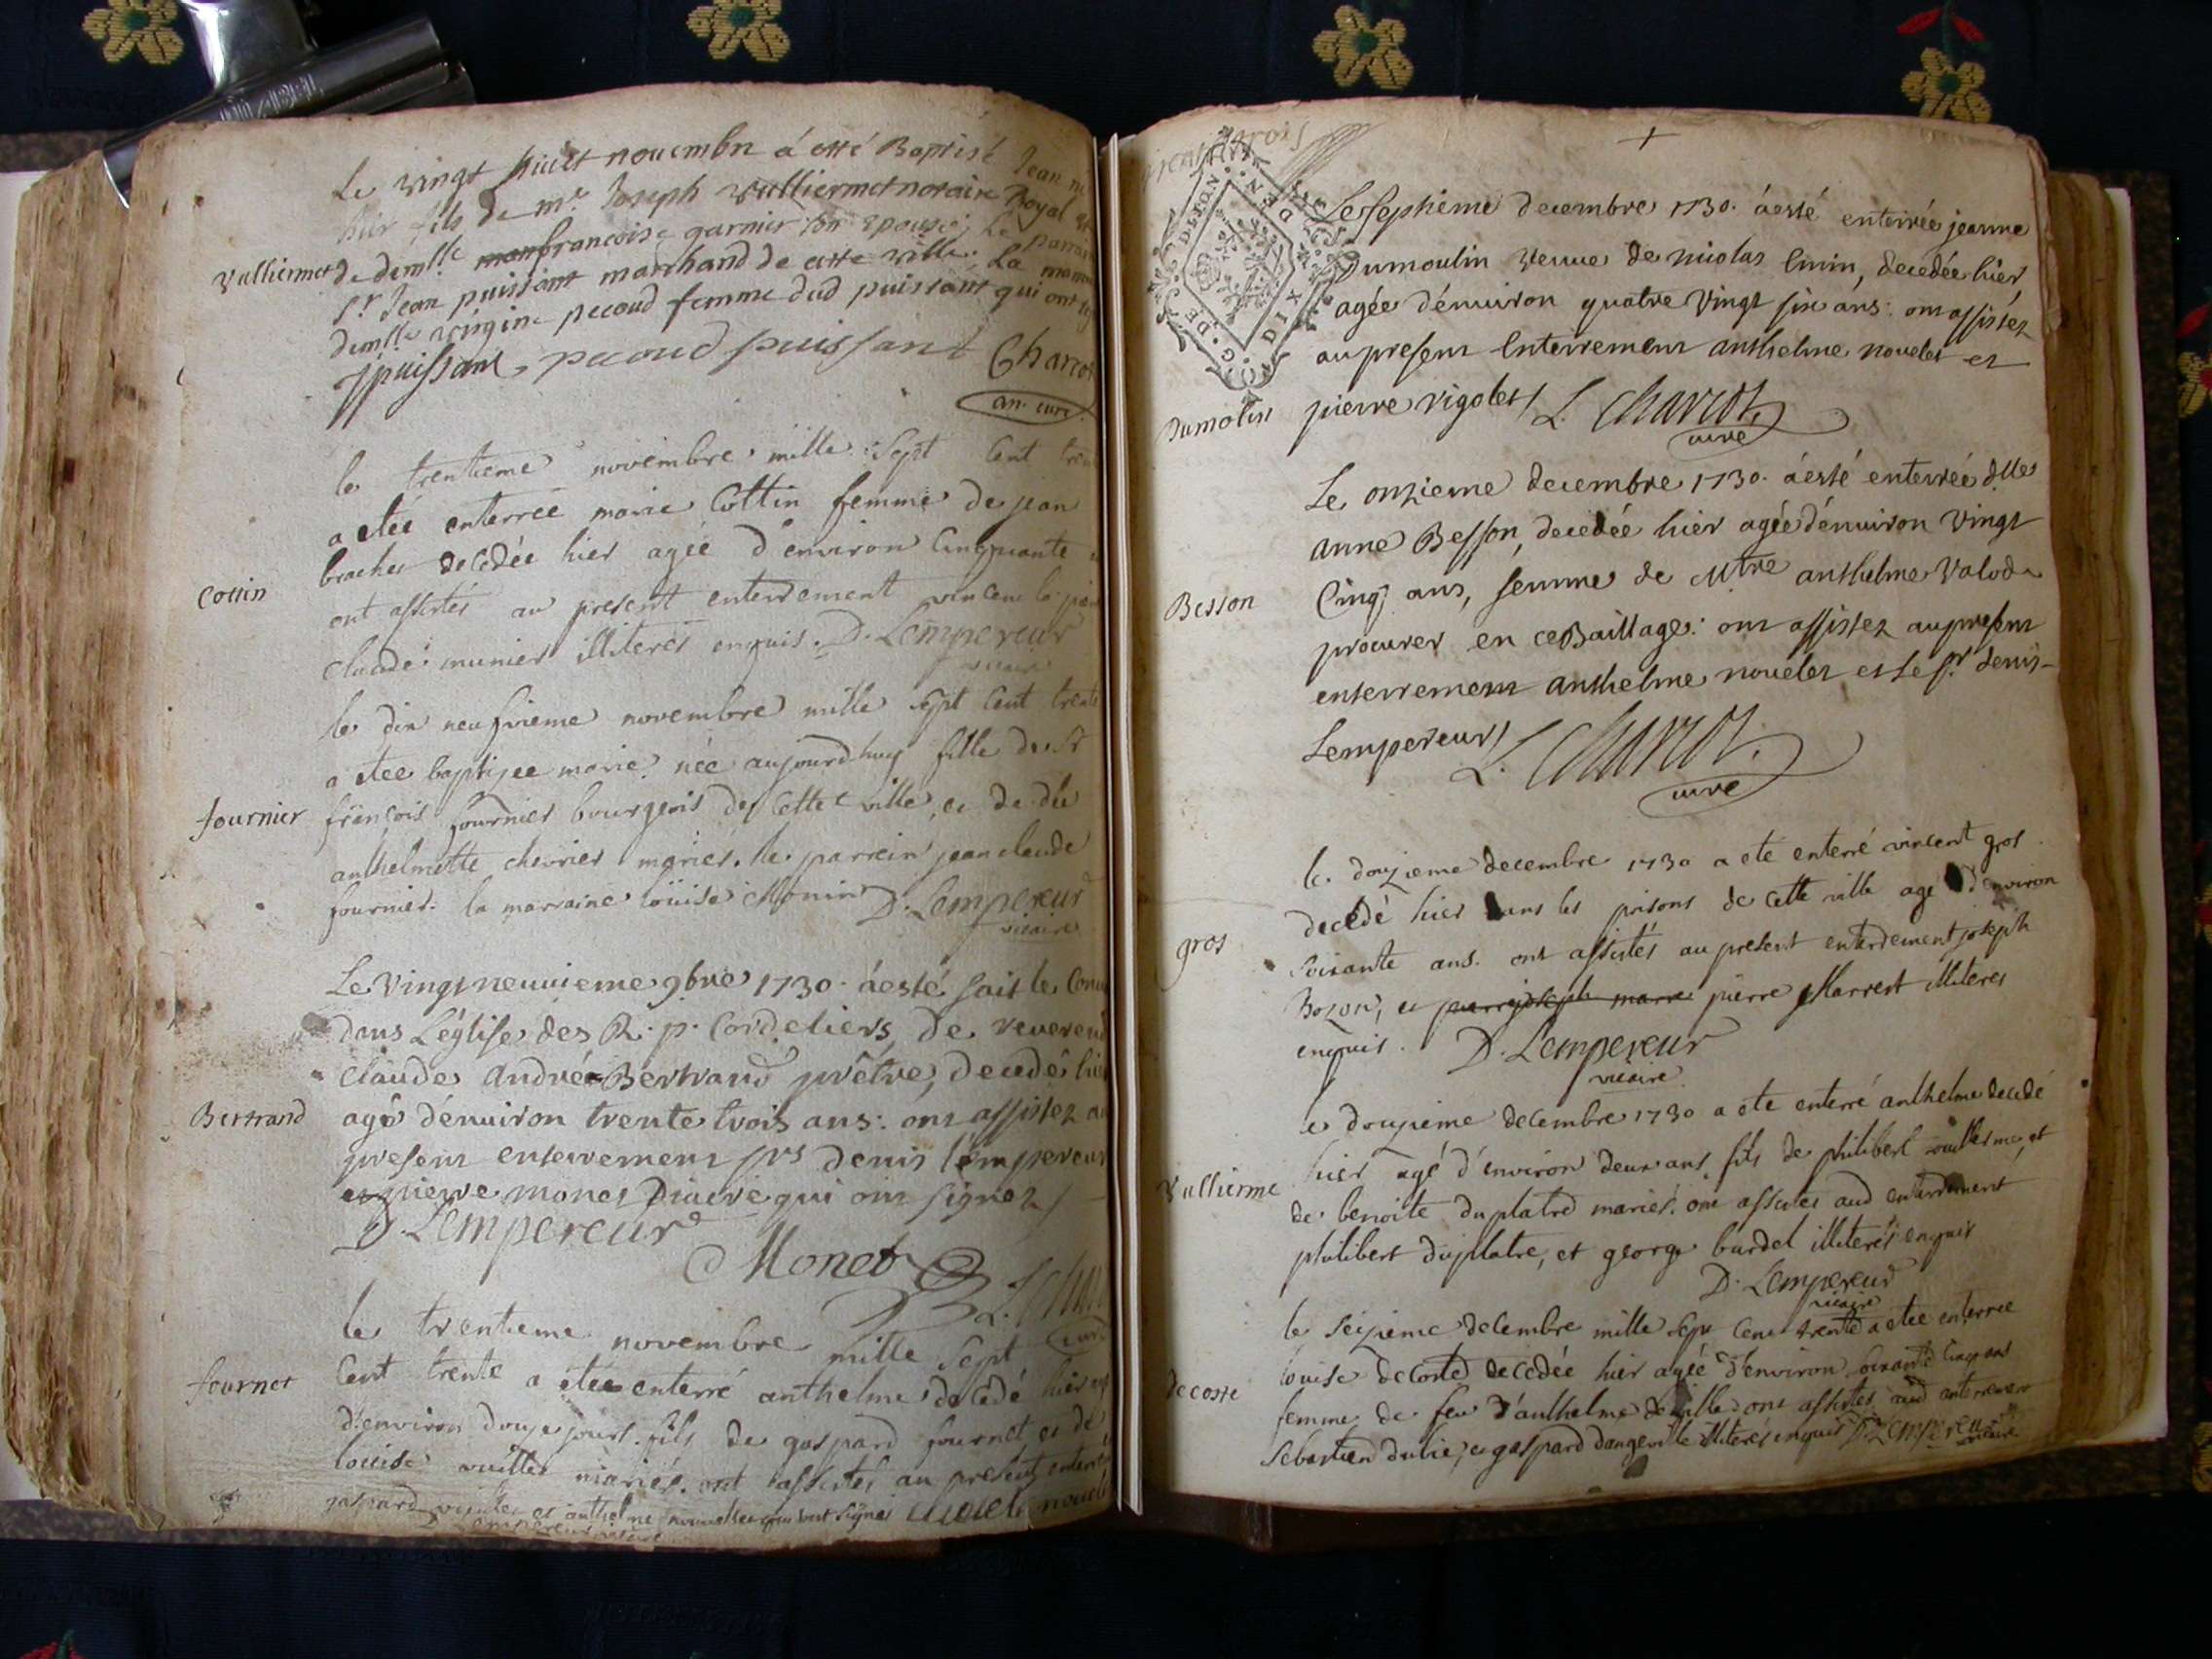 Le vingt huict novembre á esté Baptisé Jean né
hier fils de mr. Joseph Vulliermet notaire Royal et
Vulliermet de demlle francoise garnier son epouse, Le parrain
sr. Jean puissant marchand de cette ville, La marraine
demlle virgine pecoud femme dud puissant qui ont
jpuissant, pacoud puissant Charcot
an. curé
le trentieme novembre mille sept Cent trente
a etée enterrée marie Cottin femme de jean
brachet decedée hier agée d'environ Cinquante
Cottin
ont assistés au present enterrement vincent
claude munier illiterés enquis. D. Lempereur
vicaire
le dix neufvieme novembre mille sept Cent trente
a etee baptisee marie née aujourdhuy fille du Sr
fournier françois fournier bourgeois de Cette ville, et de dlle
anthelmette chevrier mariés. le parrein jean claude
fournier. la marraine loüise Monin D. Lempereur
vicaire
Le Vingt neuvieme 9bre 1730. áesté fait le Conv
dans L'église des R. p. Cordeliers, de reverend
claude André Bertrand prêtre, decedé hier
Bertrand agé dénviron trente trois ans: ont assistez au
present enterrement srs denis lempereur
et pierre monet Diacre qui ont signez
D. Lempereur
Monet L. Char
curé
le trentieme novembre mille Sept
fournet Cent trente a etée enterré anthelme decedé hier agé
d'environ douze jours. fils de gaspard fournet et de
louise vuillet mariés. ont assistés au present enterre
gaspard vuillet et anthelme nouvellet qui ont signé nouvele
Lempereur vicaire
G. DE DIJON
DIX DEN
Le septiéme decembre 1730. áesté enterrée jeanne
Dumoulin veuve de nicolas Cusin, decedée hier,
agée dénviron quatre Vingt six ans: ont assistez
au present Enterrement anthelme nouelet et
Dumolin pierre rigolet L. Charcot
curé
Le onzieme decembre 1730. áesté enterrée dlle
anne Besson, decedée hier agée dénviron Vingt
Besson Cinq ans, femme de Mtre anthelme Valod
procureur en ce Baillage: ont assistez au present
enterrement anthelme nouelet et Le sr. denis
Lempereur L. Charcot.
curé
le douzieme decembre 1730 a eté enterré vincent gros
decedé hier dans les prisons de cette ville agé d'environ
gros soixante ans. ont assistés au present enterrement joseph
Bozon, et pierre Marrest illiteres
enquis. D. Lempereur
vicaire
le douzieme decembre 1730 a eté enterré anthelme decedé
Vullierme hier agé d'environ deux ans, fils de philibert vuillerme, et
de benoite duplatre mariés. ont assistés aud enterrement
philibert duplatre, et george burdet illiterés enquis
D. Lempereur
vicaire
le seizieme decembre mille sept Cent trente a etée enterree
decoste louise decoste decedée hier agée d'environ soixante cinq ans
femme de feu d'anthelme deville ont assistés aud enterrement
sebastien dubié, et gaspard dangeville illiterés enquis D. Lempereur
vicaire